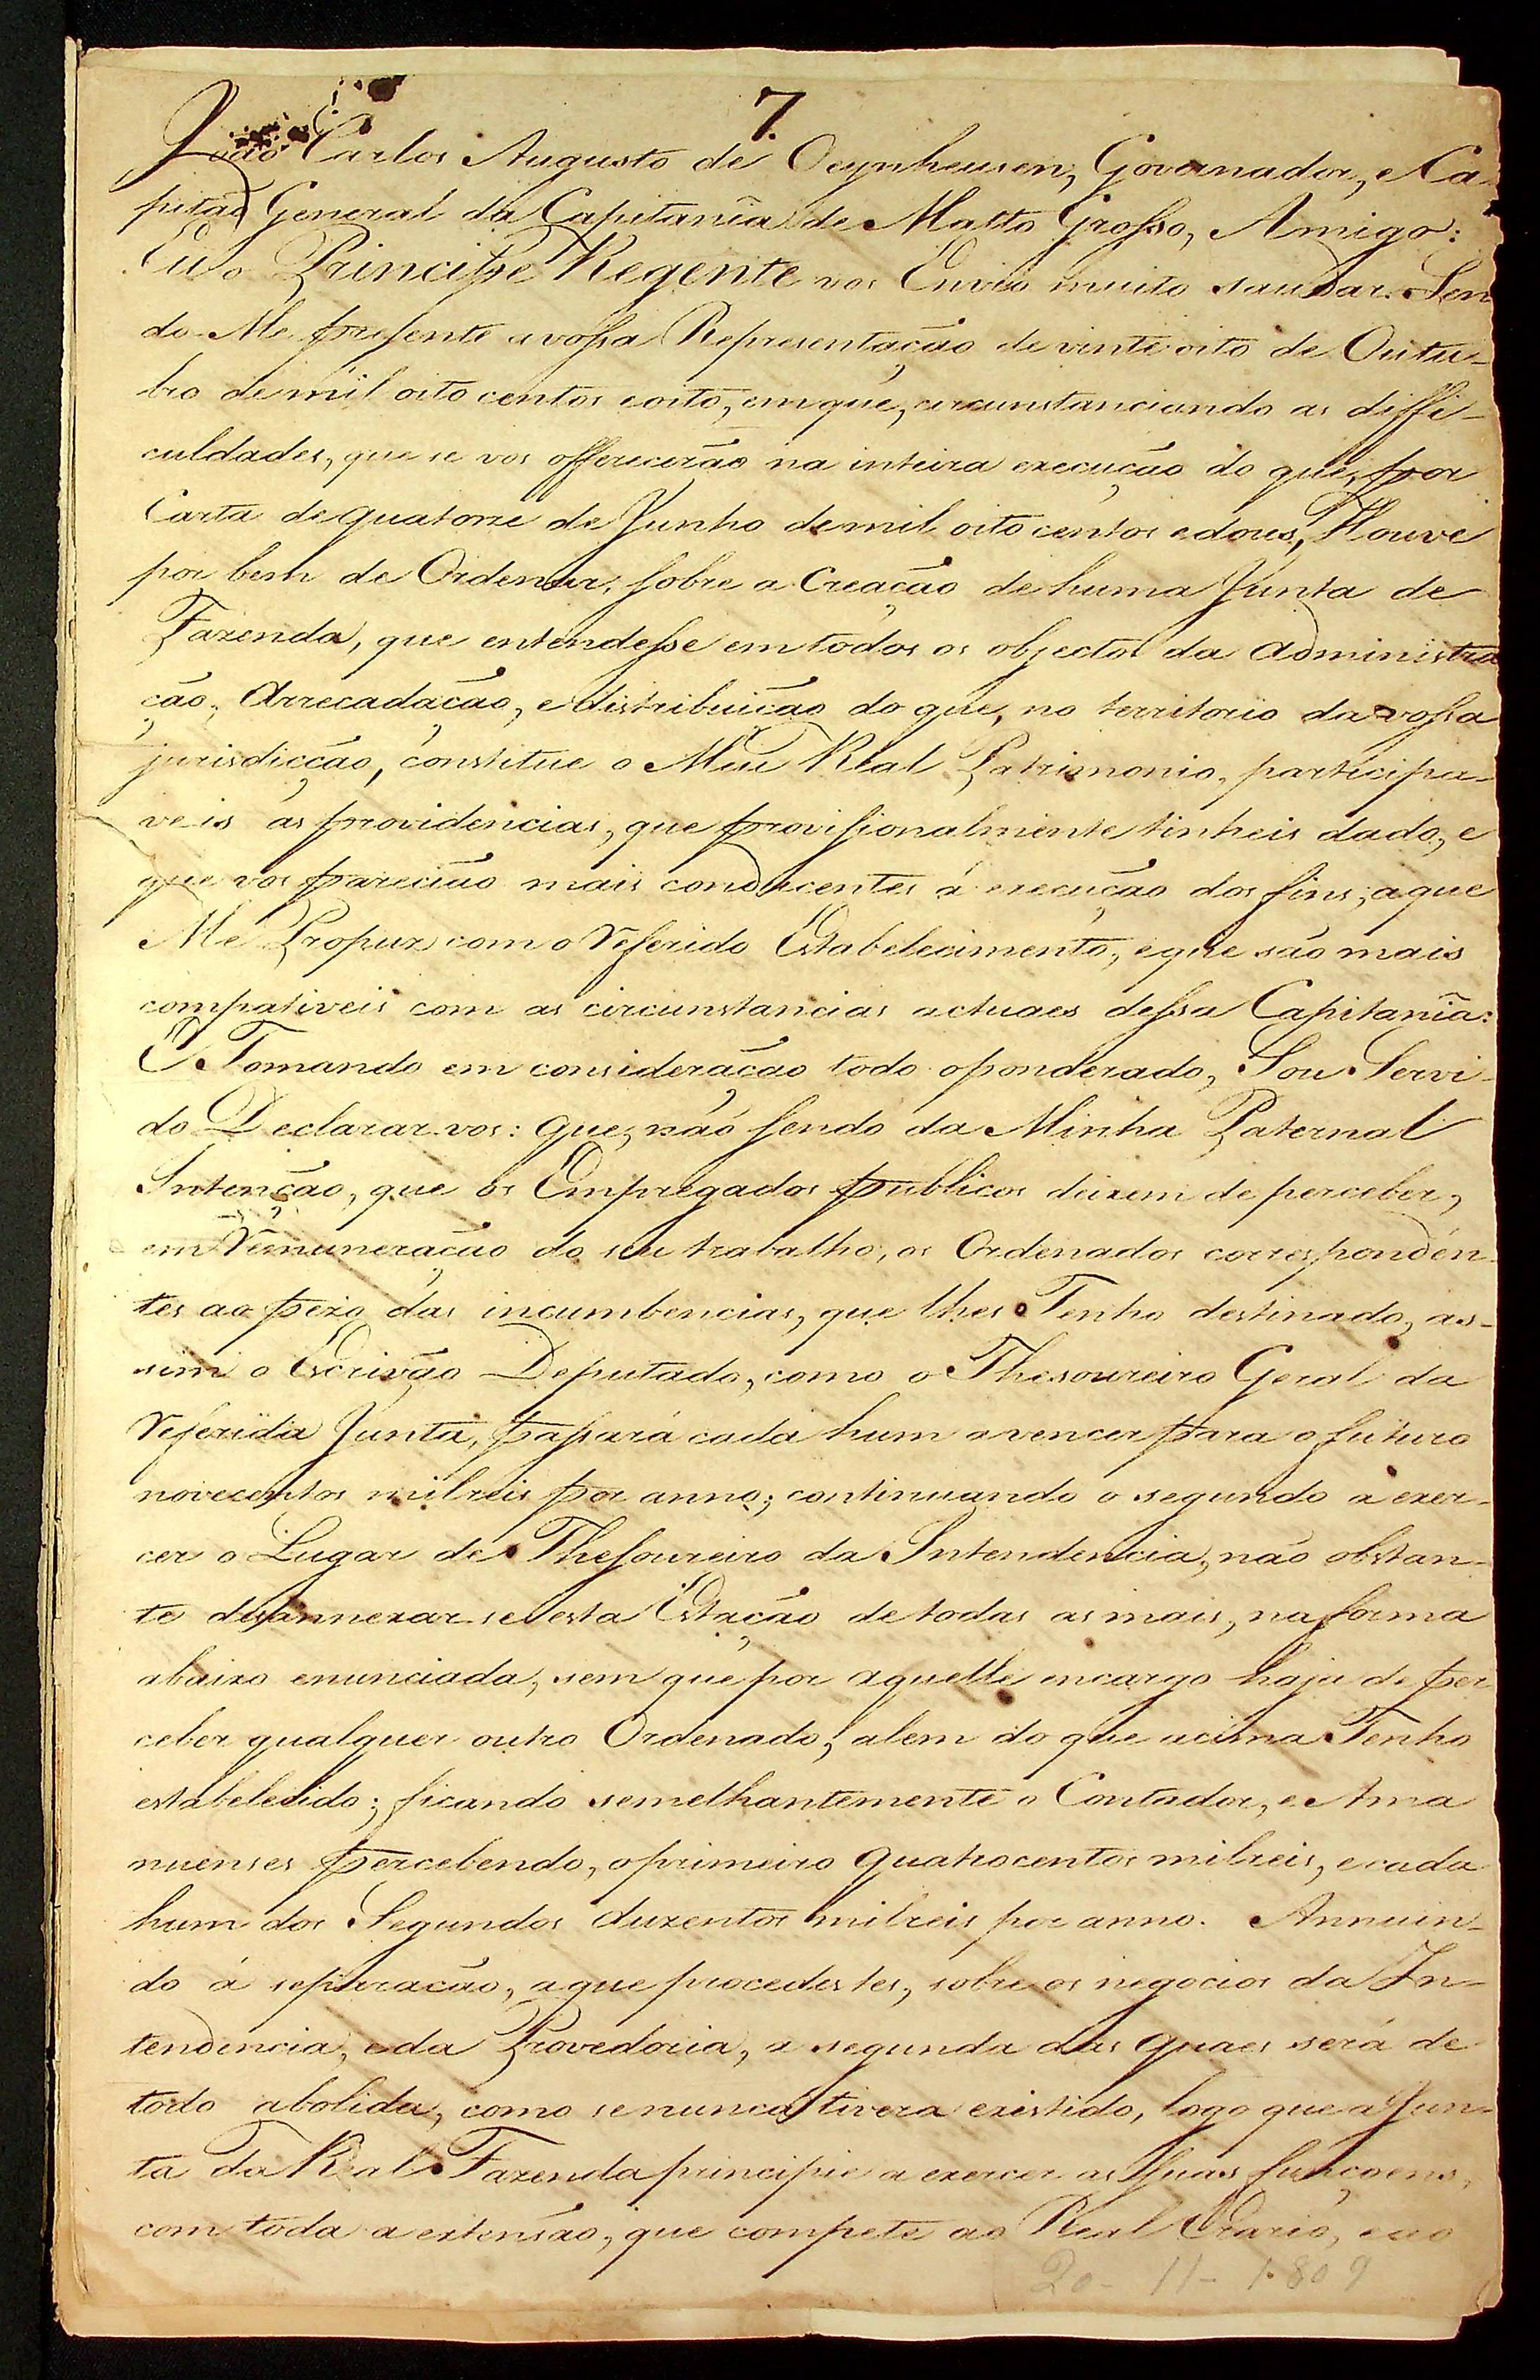 7.
João Carlos Augusto de Oeynheusen, Governador, e Ca-
pitaõ General da Capitanîa de Matto Grosso, Amigo:
Eu o Principe Regente vos Envio muito saudar. Sen
do-Me presente a vossa Representação de vinte oito de Outu-
bro de mil oito centos e oito, em que, circunstanciando as diffi-
culdades, que se vos offerecerão na inteira execução do que, por
Carta de quatorze de Junho de mil oito centos e dous, Houve
por bem de Ordenar, sobre a Creação de huma Junta de
Fazenda, que entendesse em todos os objectos da Administra
ção, Arrecadação, e distribuição do que, no territorio da vossa
jurisdicção, constitue o Meu Real Patrimonio, participa-
veis as providencias, que provisionalmente tinheis dado, e
que vos parecião mais conducentes á execução dos fins, a que
Me Propuz com o referido Estabelecimento, e que são mais
compativeis com as circunstancias actuaes dessa Capitanîa:
E Tomando em consideração todo o ponderado, Sou Servi-
do Declarar-vos: que, não sendo da Minha Paternal
Intenção, que os Empregados publicos deixem de perceber,
em remuneração do seu trabalho, os Ordenados corresponden-
tes ao pezo das incumbencias, que lhes Tenho destinado, as-
sim o Escrivão Deputado, como o Thesoureiro Geral da
referida Junta, passará cada hum a vencer para o futuro
novecentos mil reis por anno; continuando o segundo a exer-
cer o Lugar de Thesoureiro da Intendencia, não obstan-
te desannexar-se esta Estação de todas as mais, na forma
abaixo enunciada, sem que por aquelle encargo haja de per
ceber qualquer outro Ordenado, alem do que acima Tenho
estabelecido; ficando semelhantemente o Contador, e Ama
nuenses percebendo, o primeiro quatrocentos mil reis, e cada
hum dos Segundos duzentos mil reis por anno. Annuin-
do á separação, a que procedestes, sobre os negocios da In-
tendencia, e da Provedoria, a segunda das quaes será de
todo abolida, como se nunca tivera existido, logo que a Jun-
ta da Real Fazenda principie a exercer as suas funçoens,
com toda a extensão, que compete ao Real Erario, e ao
20-11-1809